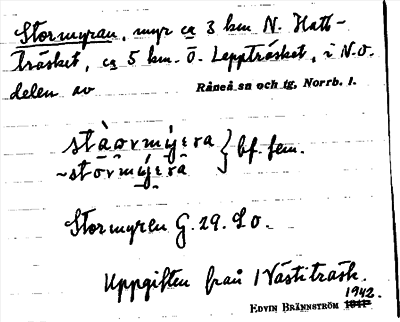 Stormyran, myr ca 3 km N. Hatt-
träsket, ca 5 km. Ö. Leppträsket, i N.O.
delen av Råneå sn och tg, Norrb. l.
stàorvmýɛra } bf. fem.
~storvmýɛra
Stormyren G. 29. SO.
Uppgiften från Västiträsk.
1942.
EDVIN BRÄNNSTRÖM